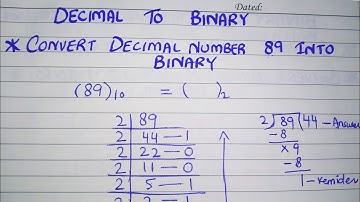 Dated:
DECIMAL TO BINARY
* CONVERT DECIMAL NUMBER 89 INTO
BINARY
(89)10 = ( )2
2 | 89
2 | 44 — 1
2 | 22 — 0
2 | 11 — 0
2 | 5 — 1
2 | 2 — 1
2 ) 89 ( 44 – Answer
-8
x9
-8
1 – Remider